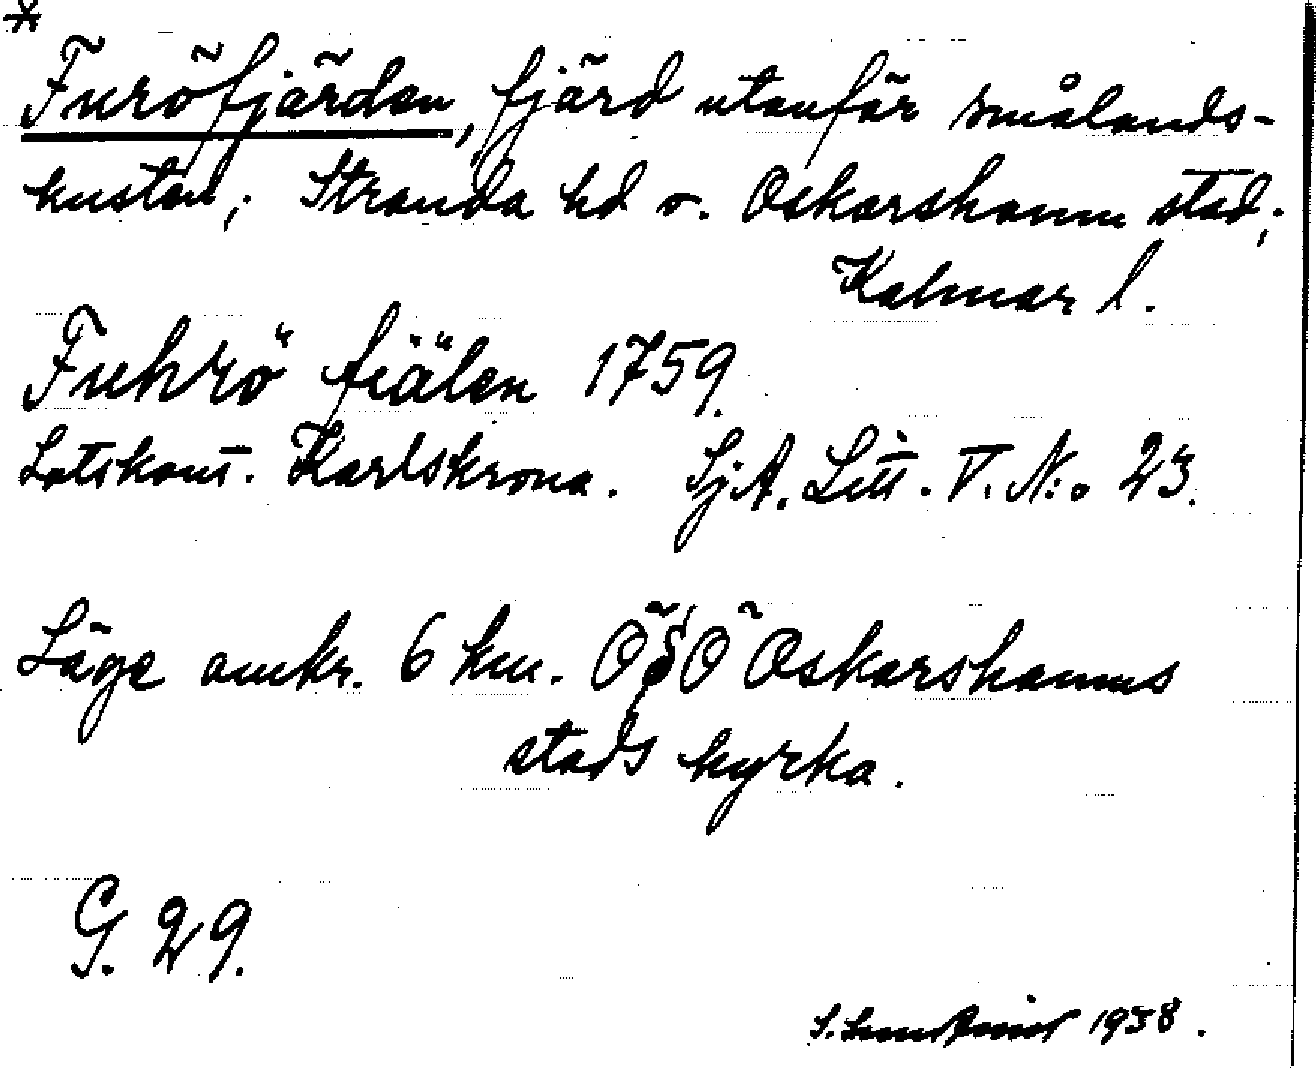 *
Furöfjärden, fjärd utanför smålands-
kusten; Stranda hd o. Oskarshamn stad;
Kalmar l.
Fuhrö fiälen 1759.
Lotskont. Karlskrona. SjA. Litt. V. N:o 23.
Läge omkr. 6 km. ÖSÖ Oskarshamns
stads kyrka.
G. 29.
S. 1938.